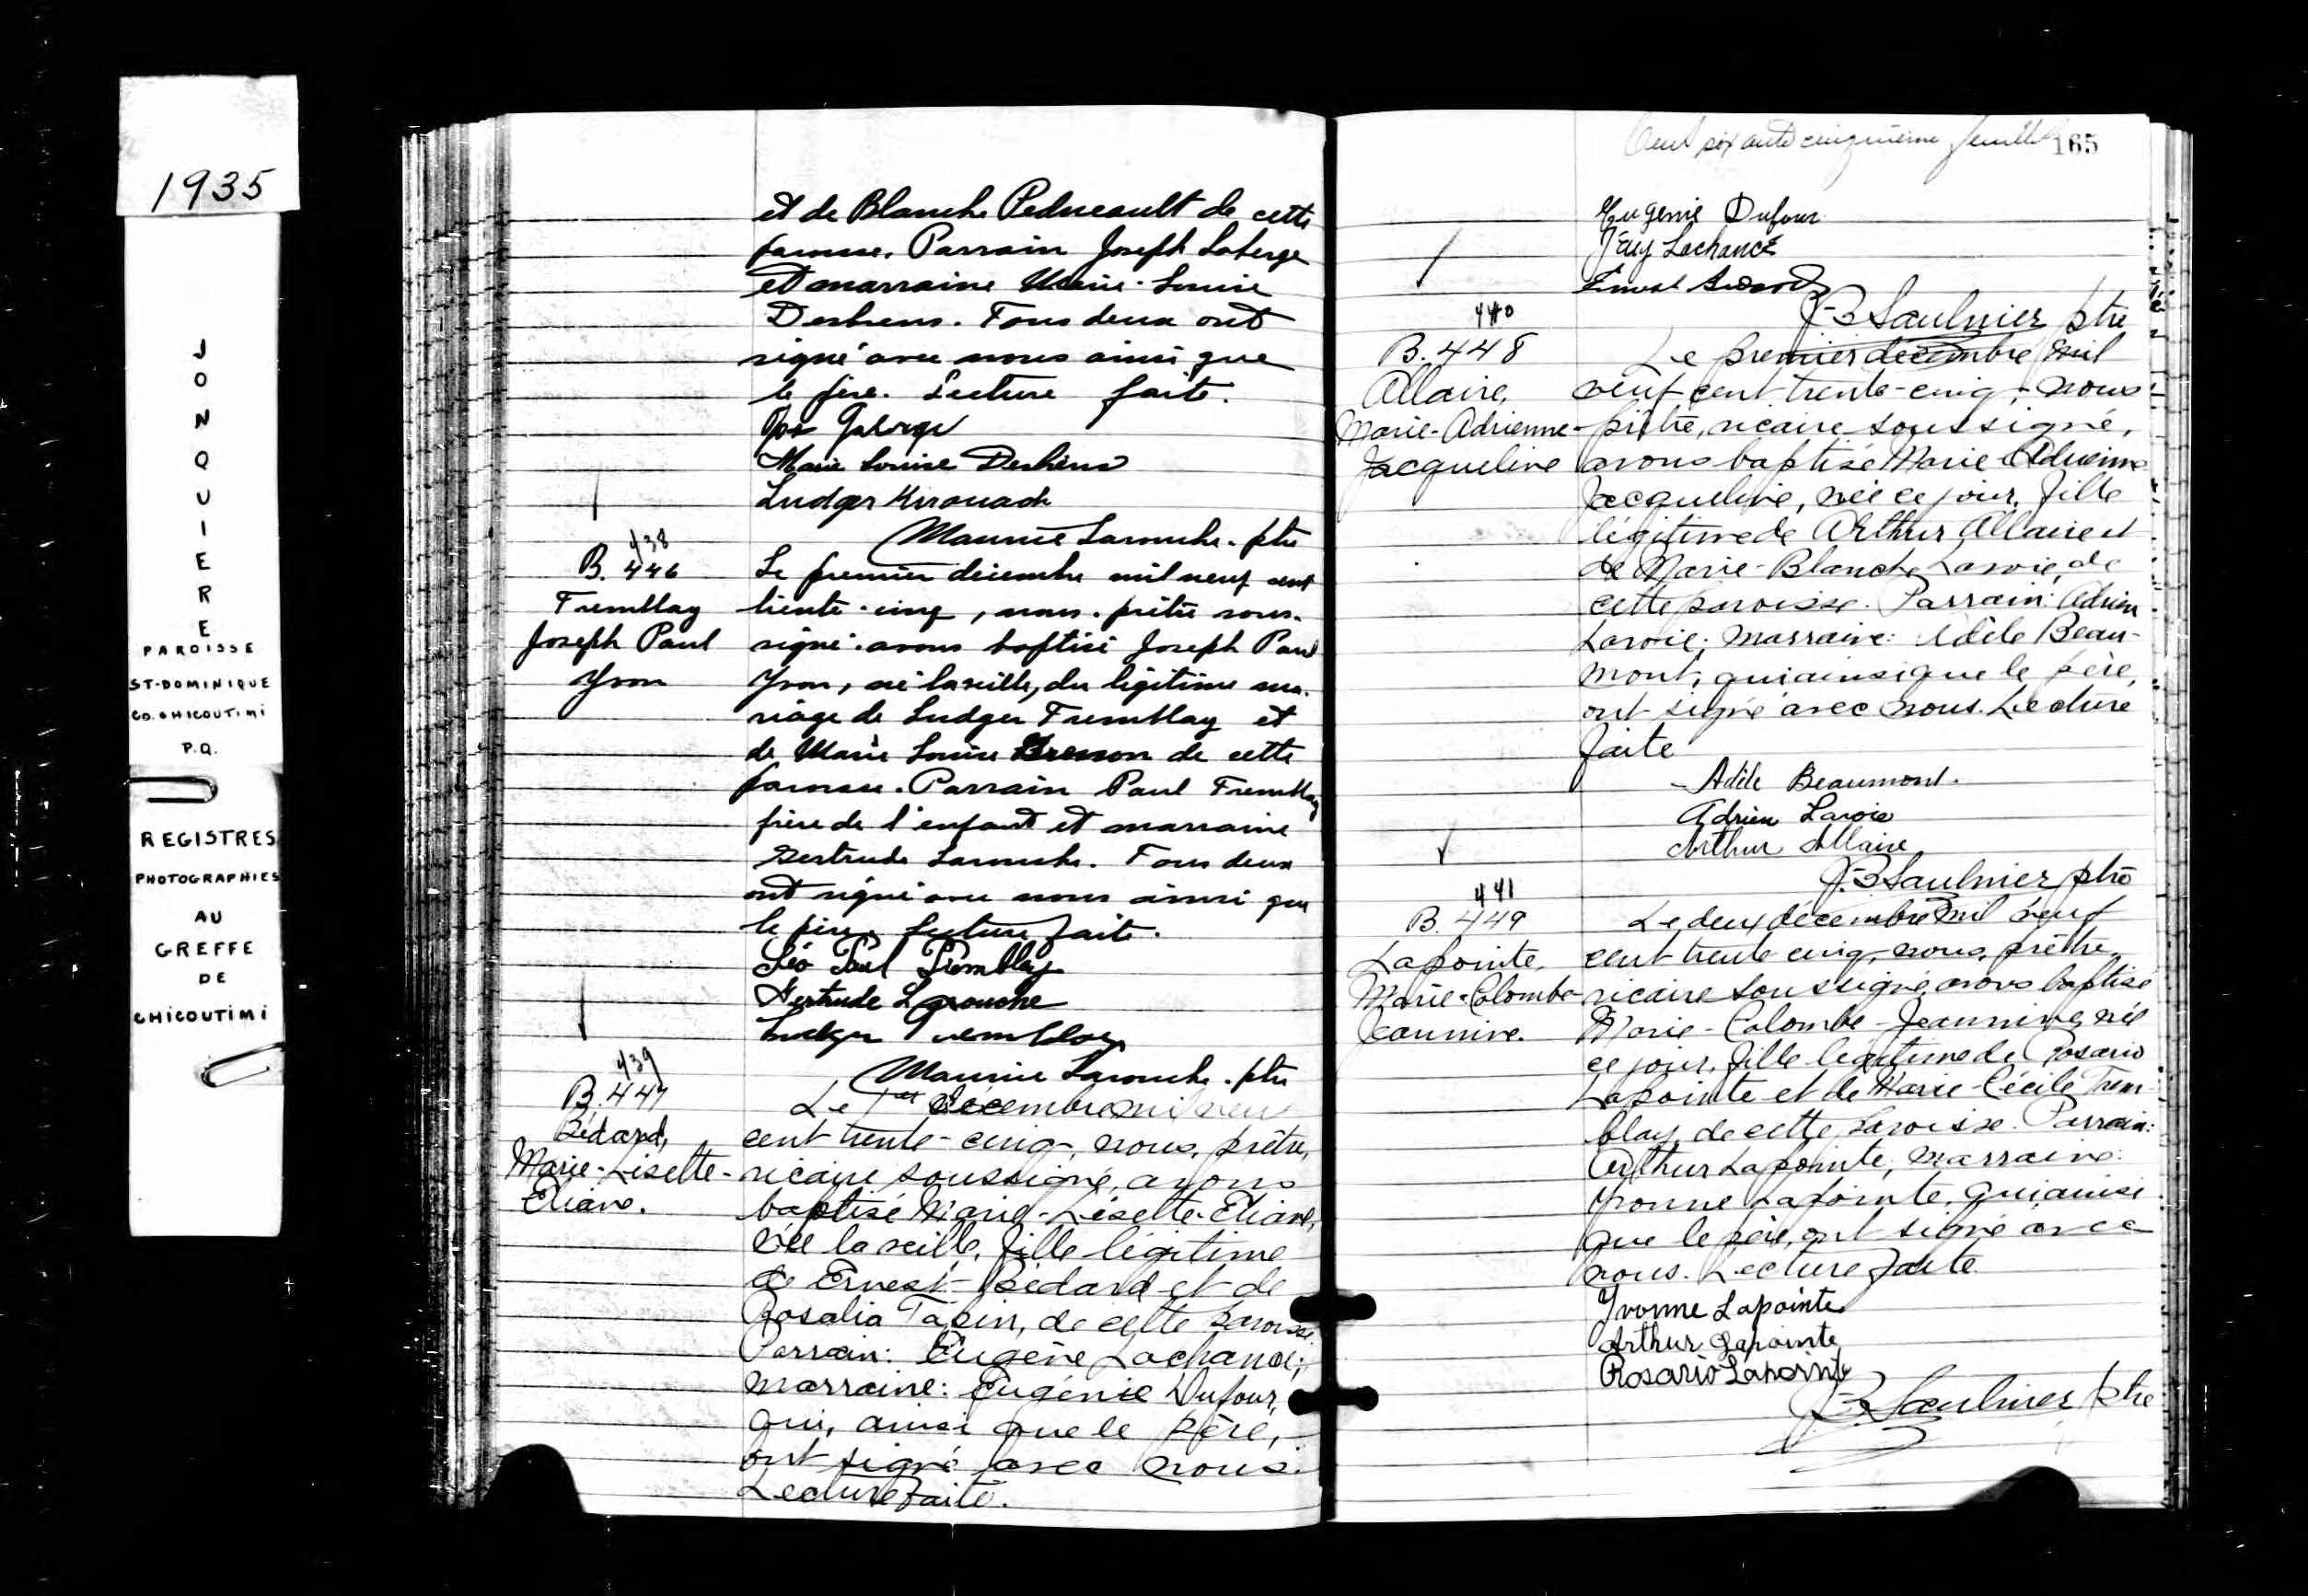 1935
JONQUIERE
PAROISSE
ST-DOMINIQUE
CO. CHICOUTIMI
P.Q.
REGISTRES
PHOTOGRAPHIES
AU
GREFFE
DE
CHICOUTIMI
et de Blanche Pedneault de cette
paroisse. Parrain Joseph Laberge
et marraine Marie-Louise
Deshens. Tous deux ont
signé avec nous ainsi que
le père. Lecture faite.
Marie Louise Deshens
Ludger Kirouack
Maurice Larouche. ptre
438
B. 446
Tremblay
Joseph Paul
Yvon
Le premier décembre mil neuf cent
trente-cinq, nous, prêtre sous-
signé avons baptisé Joseph Paul
Yvon, né la veille, du légitime ma-
riage de Ludger Tremblay et
de Marie Louise de cette
paroisse. Parrain Paul Tremblay
frère de l'enfant et marraine
Gertrude Larouche. Tous deux
ont signé avec nous ainsi que
le père. Lecture faite.
Léo Paul Tremblay
Gertrude Larouche
Ludger Tremblay
Maurice Larouche. ptre
439
B. 447
Bédard,
Marie-Lisette-
Éliane.
Le 1er décembre mil neuf
cent trente-cinq, nous, prêtre,
vicaire soussigné, avons
baptisé Marie-Lisette-Éliane,
née la veille, fille légitime
de Ernest Bédard et de
Rosalia Tapin, de cette paroisse.
Parrain: Eugène Lachance;
marraine: Eugénie Dufour,
qui, ainsi que le père,
ont signé avec nous.
Lecture faite.
Cent soixante cinquième feuillet 165
Eugenie Dufour
Lachance
Ernest
J-B Saulnier ptre
440
B. 448
Allaire,
Marie-Adrienne-
Jacqueline
Le premier décembre mil
neuf cent trente-cinq, nous
prêtre, vicaire soussigné,
avons baptisé Marie-Adrienne
Jacqueline, née ce jour, fille
légitime de Arthur Allaire et
de Marie-Blanche Lavoie, de
cette paroisse. Parrain: Adrien
Lavoie; marraine: Adèle Beau-
mont, qui ainsi que le père,
ont signé avec nous. Lecture
faite
Adèle Beaumont.
Adrien Lavoie
Arthur Allaire
J-B Saulnier ptre
441
B. 449
Lapointe,
Marie-Colombe-
Jeannine.
Le deux décembre mil neuf
cent trente cinq, nous, prêtre,
vicaire soussigné, avons baptisé
Marie-Colombe-Jeannine, née
ce jour, fille légitime de Rosario
Lapointe et de Marie-Cécile Trem-
blay, de cette paroisse. Parrain:
Arthur Lapointe; marraine:
Yvonne Lapointe, qui ainsi
que le père, ont signé avec
nous. Lecture faite.
Yvonne Lapointe
Arthur Lapointe
Rosario Lapointe
J-B Saulnier ptre